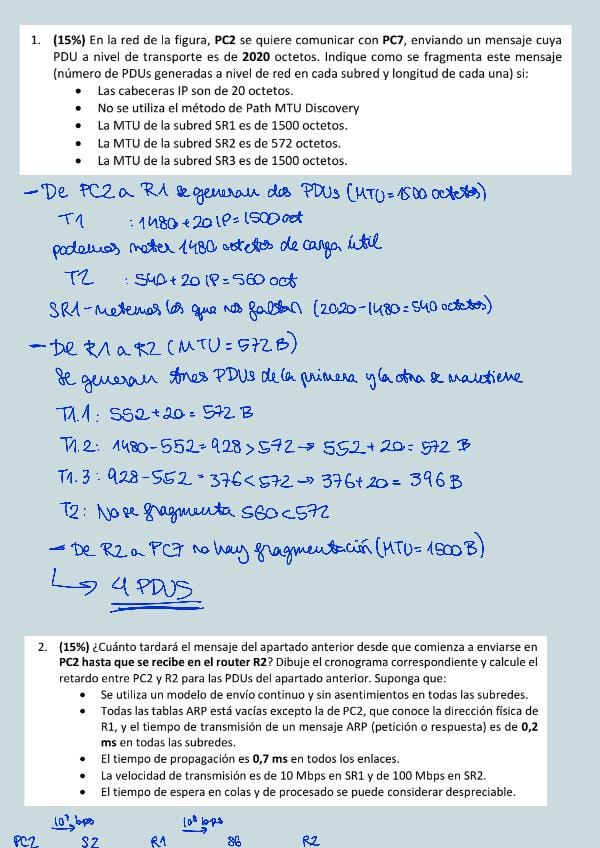 1. (15%) En la red de la figura, PC2 se quiere comunicar con PC7, enviando un mensaje cuya
PDU a nivel de transporte es de 2020 octetos. Indique como se fragmenta este mensaje
(número de PDUs generadas a nivel de red en cada subred y longitud de cada una) si:
• Las cabeceras IP son de 20 octetos.
• No se utiliza el método de Path MTU Discovery
• La MTU de la subred SR1 es de 1500 octetos.
• La MTU de la subred SR2 es de 572 octetos.
• La MTU de la subred SR3 es de 1500 octetos.
- De PC2 a R1 se generan dos PDUs (MTU = 1500 octetos)
T1 : 1480 + 20 IP = 1500 oct
podemos meter 1480 octetos de carga útil
T2 : 540 + 20 IP = 560 oct
SR1 - metemos los que nos faltan (2020 - 1480 = 540 octetos)
- De R1 a R2 (MTU = 572 B)
Se generan tres PDUS de la primera y la otra se mantiene
T1.1 : 552 + 20 = 572 B
T1.2 : 1480 - 552 = 928 > 572 → 552 + 20 = 572 B
T1.3 : 928 - 552 = 376 < 572 → 376 + 20 = 396 B
T2 : No se fragmenta 560 < 572
- De R2 a PC7 no hay fragmentación (MTU = 1500 B)
↳ 4 PDUS
2. (15%) ¿Cuánto tardará el mensaje del apartado anterior desde que comienza a enviarse en
PC2 hasta que se recibe en el router R2? Dibuje el cronograma correspondiente y calcule el
retardo entre PC2 y R2 para las PDUs del apartado anterior. Suponga que:
• Se utiliza un modelo de envío continuo y sin asentimientos en todas las subredes.
• Todas las tablas ARP está vacías excepto la de PC2, que conoce la dirección física de
R1, y el tiempo de transmisión de un mensaje ARP (petición o respuesta) es de 0,2
ms en todas las subredes.
• El tiempo de propagación es 0,7 ms en todos los enlaces.
• La velocidad de transmisión es de 10 Mbps en SR1 y de 100 Mbps en SR2.
• El tiempo de espera en colas y de procesado se puede considerar despreciable.
10⁷ bps 10⁸ bps
PC2 S2 R1 R2